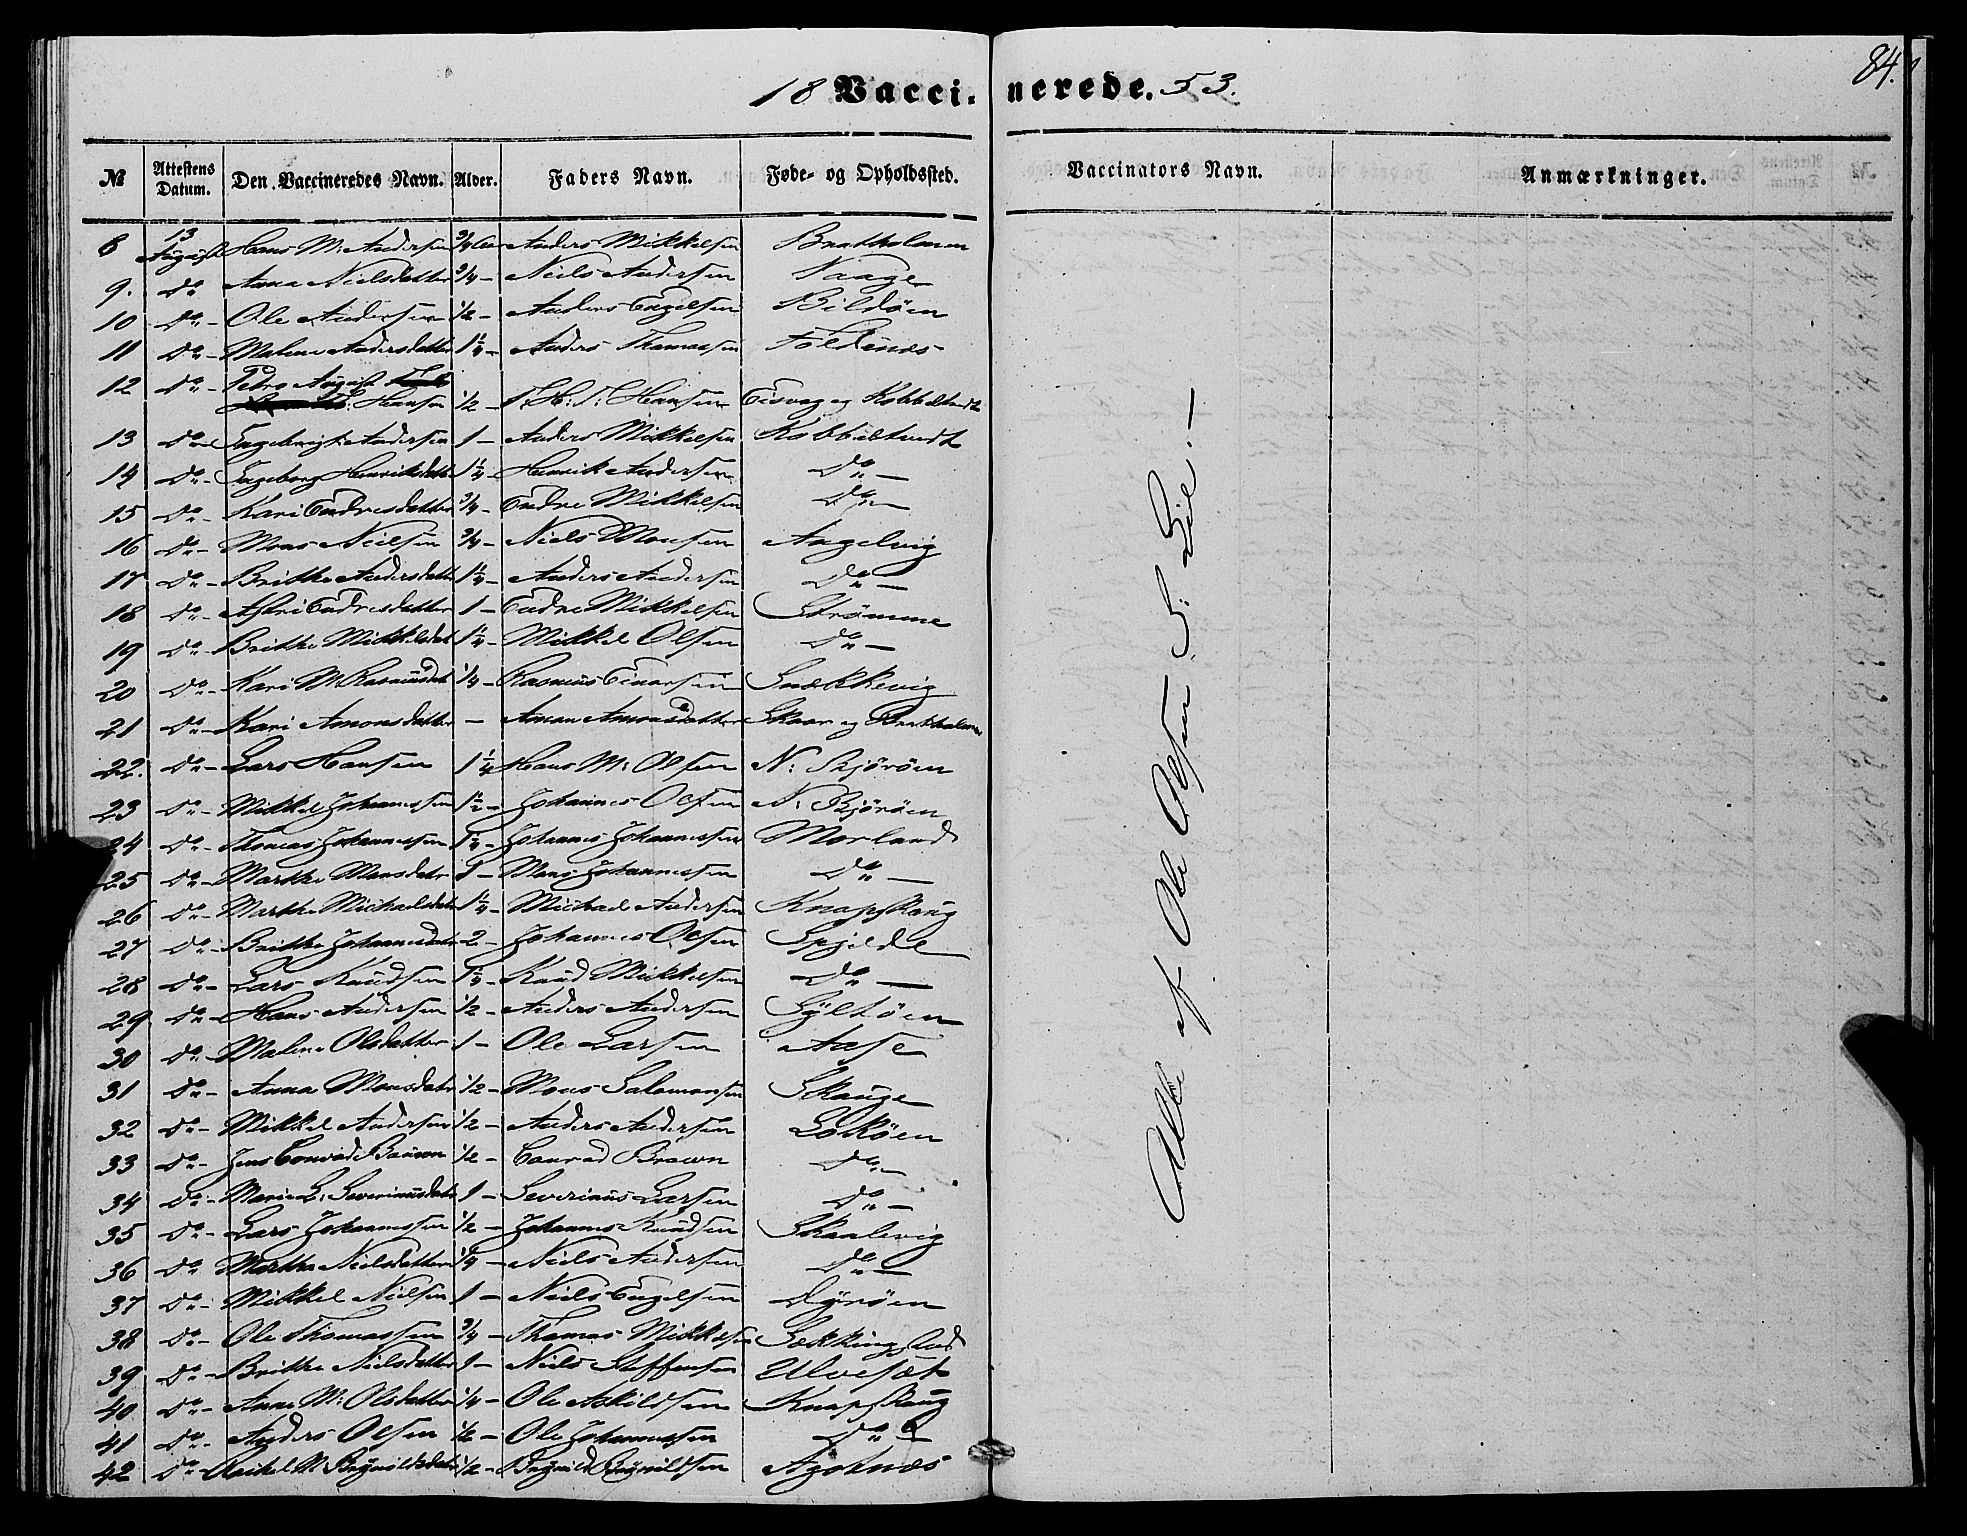 84.
18 Vaccinerede. 53.
№ Attestens Datum. Den Vaccineredes Navn. Alder. Faders Navn. Føde- og Opholdssted. Vaccinators Navn. Anmærkninger.
8 13 August Hans M. Andersen 3/4 Aar Anders Mikkelsen Bratholmen
9. Do Anna Nielsdatter 3/4 - Niels Andersen Vaage
10 Do - Ole Andersen 1/2 - Anders Engelsen Bildøen
11 Do - Malene Andersdatter 1 1/4 - Anders Thomassen Foldenæs
12 Do - Petro August
Hansen 1/2 - Hansen og Kobbeltvedt
13 Do - Engebrigt Andersen 1 - Anders Mikkelsen Kobbeltvedt
14 Do - Ingeborg Henriksdatt 1 1/4 - Henrik Andersen Do -
15 Do - Kari Endresdatter 3/4 - Endre Mikkelsen Do -
16 Do - Mons Nielsen 3/4 - Niels Monsen Angelvig
17 Do - Brithe Andersdatt 1 1/4 - Anders Andersen Do -
18 Do - Astri Endresdatter 1 - Endre Mikkelsen Strømme
19 Do - Brithe Mikkelsdat 1 1/4 - Mikkel Olsen Do -
20 Do - Kari M. Rasmusdat 1/4 - Rasmus Einarsen Snekkevig
21 Do - Kari Amonsdatter - Amonsdatter Skaar og Bratholmen
22. Do - Lars Hansen 1 1/4 Hans M: Olsen N: Bjørøen
23 Do - Mikkel Johannessen 1 1/2 - Johannes Olsen N: Bjørøen
24 Do - Thomas Johannessen 1 1/4 - Johannes Johannessen Morland
25 Do - Marthe Monsdatr 1 - Mons Johannessen Do -
26 Do - Marthe Michaelsdatr 1 1/4 - Michael Andersen Knapskoug
27 Do - Brithe Johannesdatr 2 - Johannes Olsen Spjelde
28 Do - Lars Knudsen 1 1/4 - Knud Mikkelsen Do -
29 Do - Hans Andersen 1/2 - Anders Andersen Syltøen
30 Do - Malene Olsdatter 1 - Ole Larsen Aase
31 Do - Anna Monsdatr 1/2 - Mons Salomonsen Skauge
32 Do - Mikkel Andersen 1/2 - Anders Andersen Lokøen
33 Do - Jens Conrad Brown 1/2 - Conrad Brown Do -
34 Do - Marie L: Severinusdatr 1 - Severinus Larsen Do -
35 Do - Lars Johannessen 1/2 - Johannes Knudsen Skaalevig
36 Do Martha Nielsdatter 1/4 - Niels Andersen Do -
37 Do - Mikkel Nielsen 1 - Niels Engelsen Dyrøen
38 Do - Ole Thomassen 3/4 - Thomas Mikkelsen Sekkingstad
39 Do - Brithe Nielsdatter 1 - Niels Steffensen Ulvesæt
40 Do - Anne M: Olsdatter 1/4 - Ole Askildsen Knapskoug
41 Do - Anders Olsen 1/2 - Ole Johannessen Do
42 Do - Rakel M. Brynildsdatr 1/2 - Brynild Brynildsen Agotnæs
Alle af Ole Olsen S. Lie. -